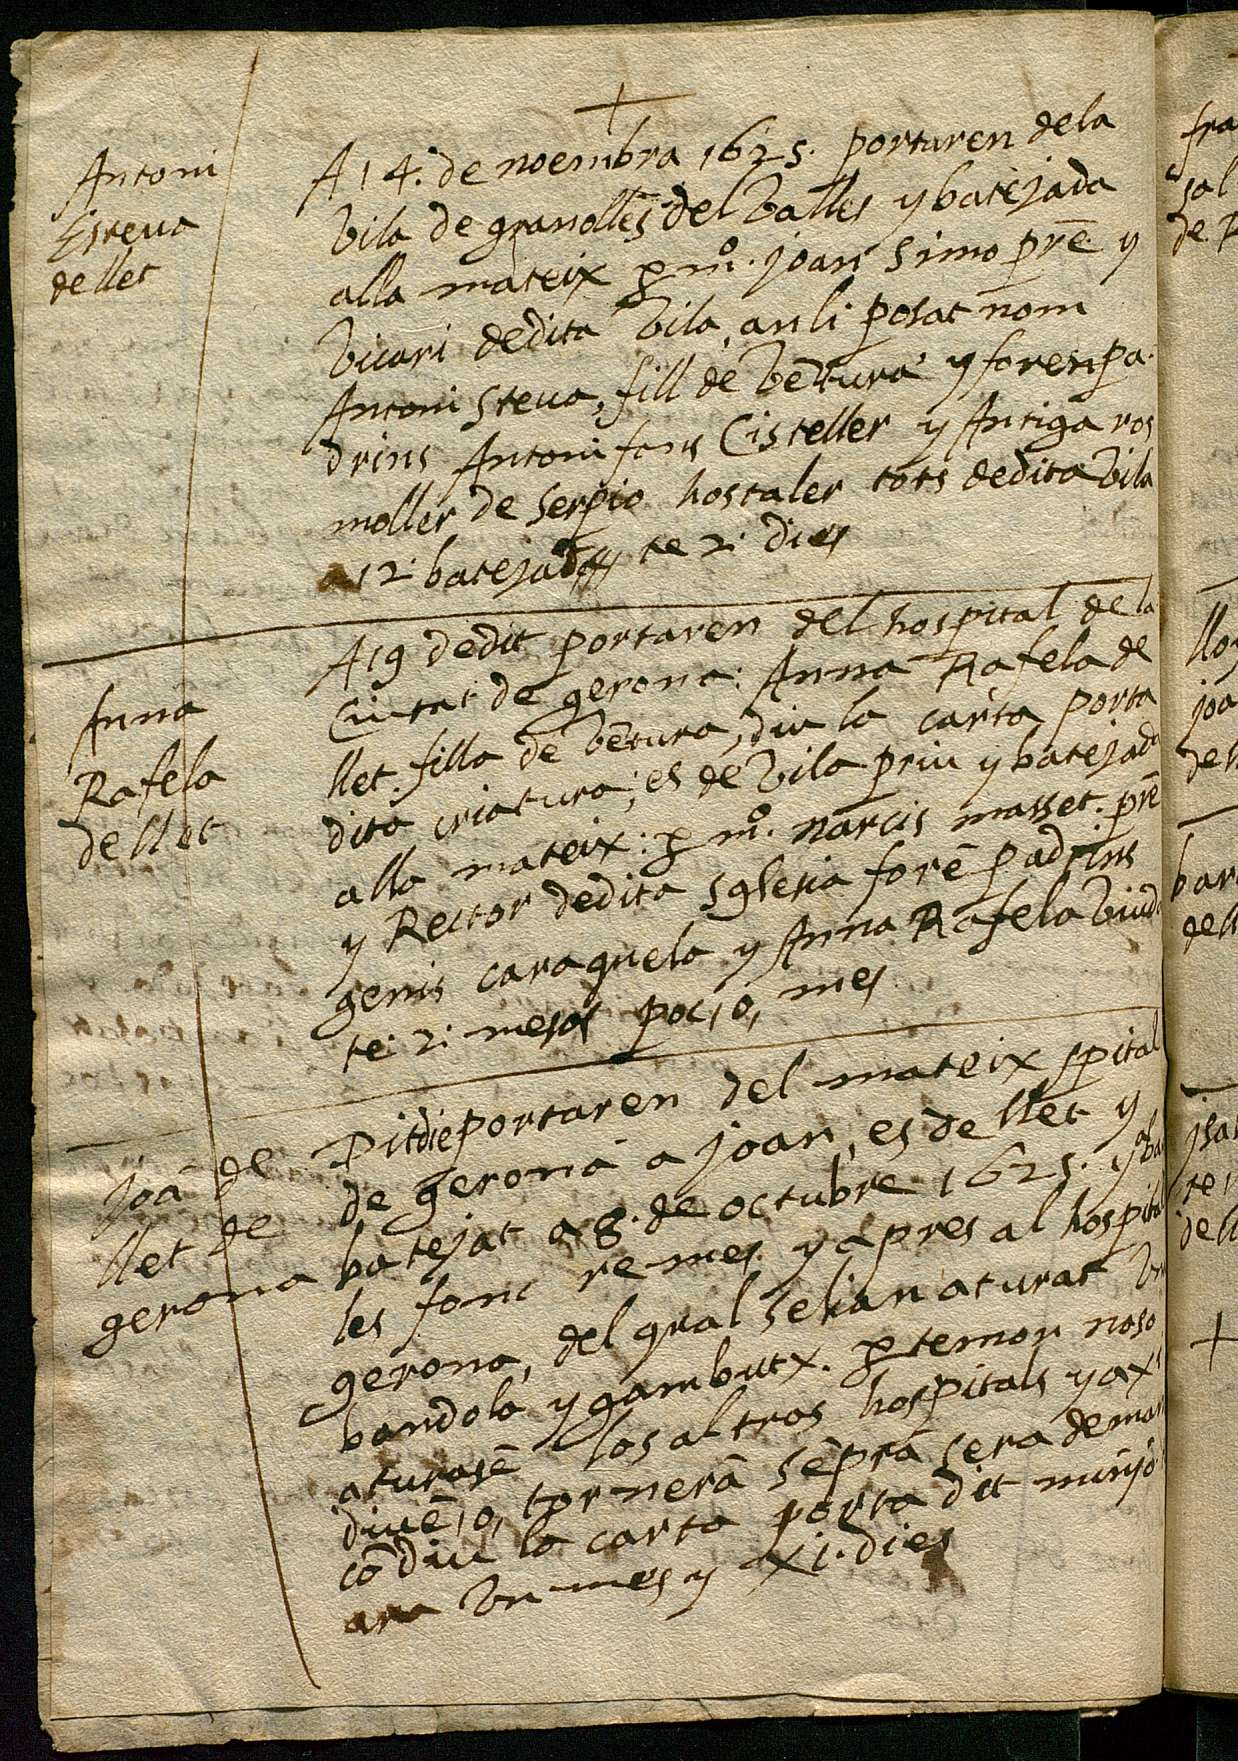 +
Antoni
Esteva
de llet
A 14. de noembra 1625. portaren dela
vila de granolles del valles y batejada
alla mateix p mº. joan simo prē. y
vicari dedita vila, an li posat nom
Antoni steva, fill de vētura y foren pa
drins Antoni fons Cisteller y Antiga ros
moller de serpio hostaler tots dedita vila
a 12 batejada te 2. dies
Anna
Rafela
de llet
A 19 dedit portaren del hospital de la
Ciutat de gerona: Anna Rafela de
llet. filla de vētura, diu la carta porta
dita criatura, es de vila priu y batejada
alla mateix: p mº. narcis masset. prē
y Rector dedita sglesia forē padrins
genis caraguela y Anna Rafela viuda
te: 2: mesos poc, o, mes
joā de
llet de
gerona
Dit die portaren del mateix spital
de gerona a joan, es de llet y
batejat a 8. de octubre 1625. y
les fonc re mes. y apres al hospital
gerona, del qual se han aturat
bandola y gambutx. p temor noso
aturasē los altros hospitals y axi
diuē, o, tornerā sēprā sera demon
cō diu la carta porta dit minyo
ara vn mes y xi. dies
fra
sal
de
llo
joa
de
bar
dell
jsa
te
dell
+